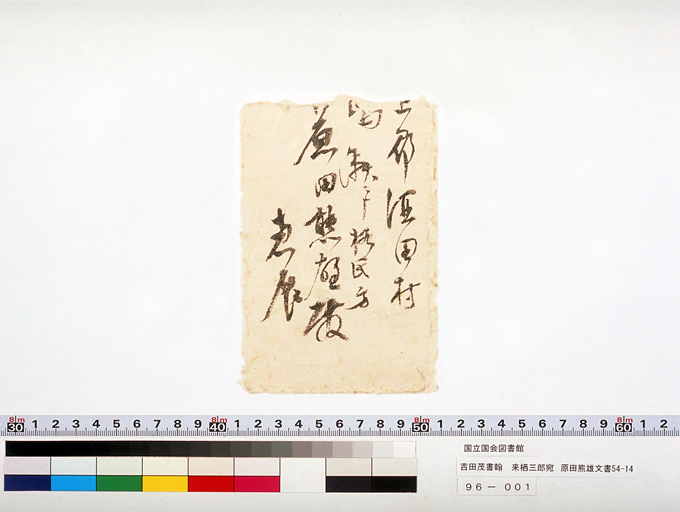 上郡酒田村
氏方
原田熊雄殿
恵展
8|m 30 1 2 3 4 5 6 7 8 9 8|m 40 1 2 3 4 5 6 7 8 9 8|m 50 1 2 3 4 5 6 7 8 9 8|m 60 1 2
国立国会図書館
吉田茂書翰 来栖三郎宛 原田熊雄文書54-14
96-001